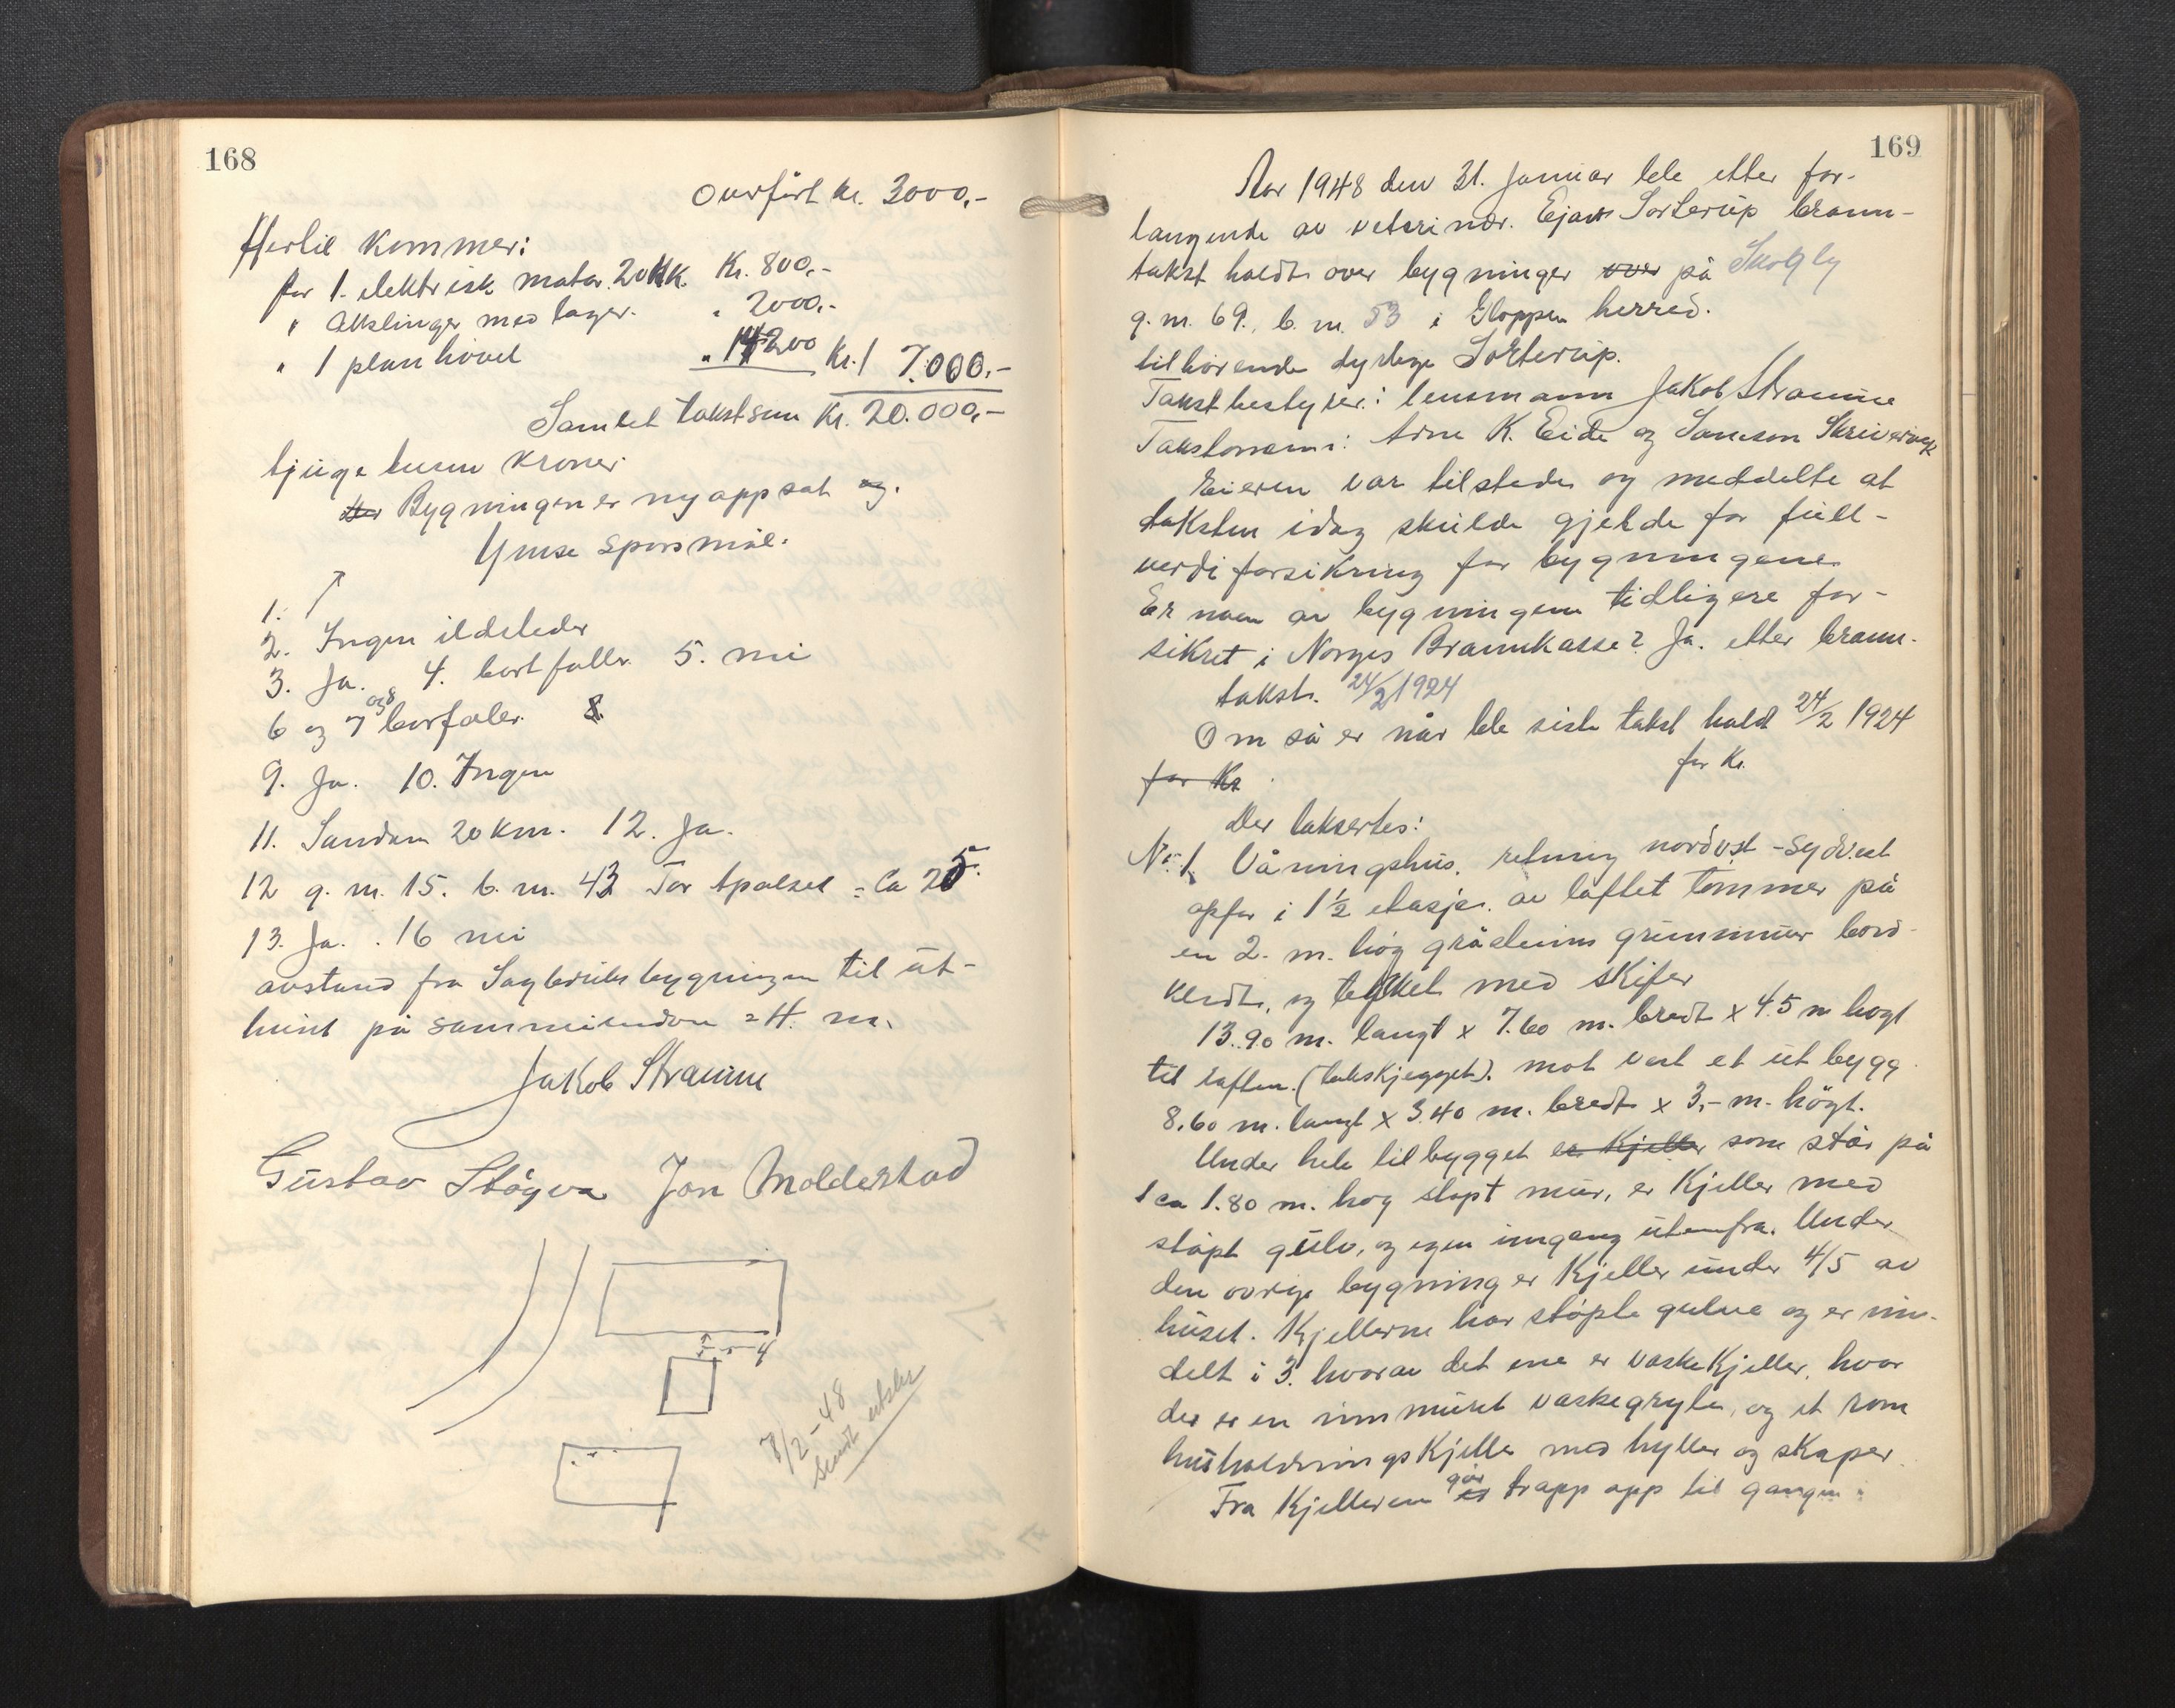 168
Overført kr. 3000,-
Hertil kommer:
for 1. elektrisk motor. 20 HK. Kr. 800,-
" Akslinger med lager. " 2000,-
" 1 plan høvel " 14200 Kr. 17.000,-
Samlet takstsum Kr. 20.000,-
tjuge tusen kroner.
Bygningen er ny oppsat og.
Ymse spørsmål.
1.
2. Ingen ildsteder
3. Ja. 4. bortfaller. 5. nei
6 og 7 og 8 borfaler. 8.
9. Ja. 10. Ingen
11. Sandane 20 km. 12. Ja.
12 g. nr. 15. b. nr. 43 Tor Apalset = Ca 25.
13. Ja. . 16 nei
avstand fra Sagbruksbygningen til ut-
huset på sammeiendom = 4. m.
Jakob Straume
Gustav Støyva Jon Molderstad
4
7/2-48
Sendt utskr
169
Aar 1948 den 31. Januar ble etter for-
langende av veterinær. Ejars Sorterup brann-
takst holdt over bygninger over på Skogly
g. nr. 69., b. nr. 53 i Gloppen herred.
tilhørende dyrlege Sorterup.
Takstbestyrer: lensmann Jakob Straume
Takstmenn: Arne K. Eide og Samson
Eieren var tilstede og meddelte at
taksten idag skulde gjelde for full-
verdiforsikring for bygningene.
Er noen av bygningene tidligere for-
sikret i Norges Brannkasse? Ja. etter brann-
takst. 24/2 1924
Om så er når ble siste takst holdt 24/2 1924
for Kr.
for Kr
Der taksertes:
Nr. 1. Våningshus. retning nordøst - sydvest
opfør i 1½ etasje. av laftet tømmer på
en 2. m. høg gråsteins grunnmur bord-
kledt, og tekket med skifer
13.90 m. langt x 7.60 m. bredt x 4.5 m høgt
til raften. (takskjegget). mot vest et utbygg
8,60 m. langt x 3.40 m. bredt x 3,- m. høgt.
Under hele tilbygget er Kjeller som står på
1 ca 1.80 m. høg støpt mur, er Kjeller med
støpt gulv, og egen inngang utenfra. Under
den øvrige bygning er Kjeller under 4/5 av
huset. Kjellerne har støpte gulve og er inn-
delt i 3. hvorav det ene er vaskekjeller, hvor
der er en innmuret vaskegryte, og et rom
husholdningsKjeller med hyller og skaper.
Fra Kjelleren er går trapp opp til gangen.